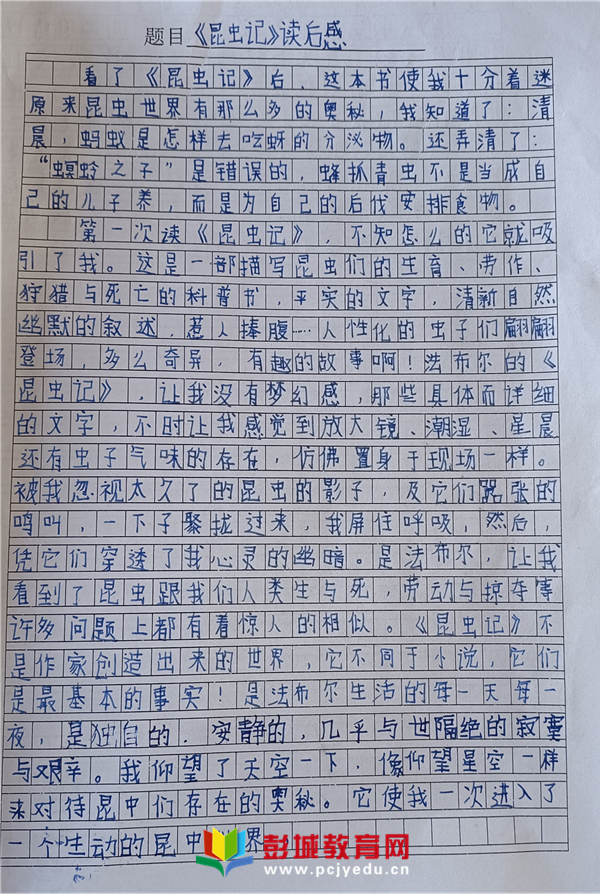 题目《昆虫记》读后感
看了《昆虫记》后，这本书使我十分着迷
原来昆虫世界有那么多的奥秘，我知道了：清
晨，蚂蚁是怎样去吃蚜的分泌物。还弄清了：
“螟蛉之子”是错误的，蜂抓青虫不是当成自
己的儿子养，而是为自己的后代安排食物。
第一次读《昆虫记》，不知怎么的它就吸
引了我。这是一部描写昆虫们的生育、劳作、
狩猎与死亡的科普书，平实的文字，清新自然
幽默的叙述，惹人捧腹……人性化的虫子们翩翩
登场，多么奇异，有趣的故事啊！法布尔的《
昆虫记》，让我没有梦幻感，那些具体而详细
的文字，不时让我感觉到放大镜、潮湿、星晨
还有虫子气味的存在，仿佛置身于现场一样。
被我忽视太久了的昆虫的影子，及它们嚣张的
鸣叫，一下子聚拢过来，我屏住呼吸，然后，
凭它们穿透了我心灵的幽暗。是法布尔，让我
看到了昆虫跟我们人类生与死，劳动与掠夺等
许多问题上都有着惊人的相似。《昆虫记》不
是作家创造出来的世界，它不同于小说，它们
是最基本的事实！是法布尔生活的每一天每一
夜，是独自的．安静的，几乎与世隔绝的寂寞
与艰辛。我仰望了天空一下，像仰望星空一样
来对待昆中们存在的奥秘。它使我一次进入了
一个生动的昆中世界。
彭城教育网
www.pcjyedu.cn